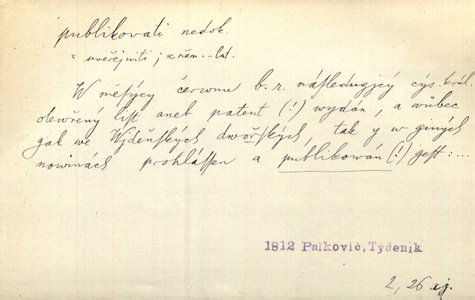 publikovati nedok.
= uveřejniti; z něm.-lat.
W měsýcy červnu b. r. následugjcý cýs. král.
otewřený list aneb patent (!) wydán, a wůbec
gak we Wjdeňských dwořských, tak y w giných
nowinách prohlássen a publikowán (!) gest: ...
1812 Palkovič, Týdeník
2, 26 aj.